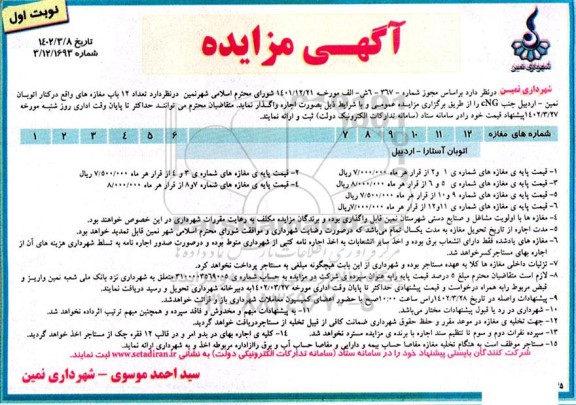 نوبت اول
آگهی مزایده
تاریخ ۱۴۰۲/۳/۸
شماره ۳/۱۲/۱۶۹۳
شهرداری نمین
شهرداری نمین درنظر دارد براساس مجوز شماره - ۳۶۷ - ش - الف مورخه ۱۴۰۱/۱۲/۲۱ شورای محترم اسلامی شهرنمین درنظردارد تعداد ۱۲ باب مغازه های واقع درکنار اتوبان
نمین - اردبیل جنب cNG را از طریق برگزاری مزایده عمومی و با شرایط ذیل بصورت اجاره واگذار نماید. متقاضیان محترم می توانند حداکثر تا پایان وقت اداری روز شنبه مورخه
۱۴۰۲/۳/۲۷ پیشنهاد قیمت خود رادر سامانه ستاد (سامانه تدارکات الکترونیک دولت) ثبت و ارائه نمایند.
شماره های مغازه ۱۲ ۱۱ ۱۰ ۹ ۸ ۷ ۶ ۵ ۴ ۳ ۲ ۱
اتوبان آستارا - اردبیل
۱- قیمت پایه ی مغازه های شماره ی ۱ و ۲ از قرار هر ماه ۷/۰۰۰/۰۰۰ ریال
۲- قیمت پایه ی مغازه های شماره ی ۳ و ۴ از قرار هر ماه ۷/۵۰۰/۰۰۰ ریال
۳- قیمت پایه ی مغازه های شماره ی ۵ و ۶ از قرار هر ماه ۸/۰۰۰/۰۰۰ ریال
۴- قیمت پایه ی مغازه های شماره ۷ و ۸ از قرار هر ماه ۸/۰۰۰/۰۰۰
۵- قیمت پایه ی مغازه های شماره ۹ و ۱۰ از قرار هر ماه ۷/۵۰۰/۰۰۰ ریال
۶- قیمت پایه ی مغازه های شماره ی ۱۱ و ۱۲ از قرار هر ماه ۷/۰۰۰/۰۰۰ ریال
۴- مغازه ها با اولویت مشاغل و صنایع دستی شهرستان نمین قابل واگذاری بوده و برندگان مزایده مکلف به رعایت مقررات شهرداری در این خصوص خواهند بود.
۵- مدت اجاره از تاریخ تحویل مغازه به مدت یکسال تمام می‌باشد که درصورت رضایت شهرداری و موافقت شورای محترم اسلامی شهر نمین قابل تمدید خواهد بود.
۶- مغازه های یادشده فقط دارای انشعاب برق بوده و اخذ سایر انشعابات به اخذ اجاره نامه کتبی از شهرداری منوط بوده و درصورت صدور اجاره نامه به تسلط شهرداری هزینه های آن از
اجاره بهای مستاجر کسر خواهد شد.
۷- تزئینات داخلی مغازه ها کلا به عهده مستاجر بوده و شهرداری از این بابت هیچگونه مبلغی به مستاجر پرداخت نخواهد کرد.
۸- لازم است متقاضیان محترم مبلغ ۵ درصد قیمت پایه رابه عنوان سپرده ی شرکت در مزایده به حساب سپرده ی شماره ی متعلق به شهرداری نزد بانک ملی شعبه نمین واریز و
فیش مربوط رابه همراه درخواست و قیمت پیشنهادی حداکثر تا پایان وقت اداری مورخه ۱۴۰۲/۰۳/۲۷ به دبیرخانه شهرداری تحویل و رسید دریافت نمایند.
۹- پیشنهادات واصله در تاریخ ۱۴۰۲/۳/۲۸ راس ساعت ۱۰/۰۰ صبح با حضور اعضای کمیسیون معاملات شهرداری باز و قرائت خواهدشد.
۱۰- شهرداری در رد یا قبول پیشنهادات مختار می‌باشد.
۱۱- به پیشنهادات مبهم و مخدوش و فاقد سپرده و همچنین مبهم ترتیب اثر داده نخواهد شد.
۱۲- جهت تخلیه ی مغازه در موعد مقرر و حفظ حقوق شهرداری ضمانت کافی از قبیل تخلیه از مستاجر دریافت خواهد گردید.
۱۳- سپرده نفرات دوم و سوم تا تنظیم سند اجاره با برنده ی مزایده مسترد نخواهد شد.
۱۴- کلیه ی اجاره بهای در بدو امر و در قالب ۱۲ فقره چک از مستاجر اخذ خواهد گردید.
۱۵- مستاجر موظف است به هنگام تخلیه مغازه مفاصا حساب بیمه و دارایی و مفاصا حساب آب و برق را از اداره مربوطه اخذ و به شهرداری ارائه نماید.
شرکت کنندگان بایستی پیشنهاد خود را در سامانه ستاد (سامانه تدارکات الکترونیکی دولت) به نشانی www.setadiran.ir ثبت نمایند.
سید احمد موسوی - شهرداری نمین